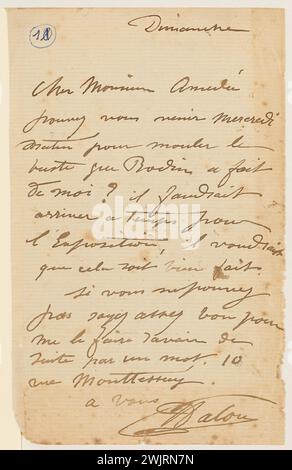 18
Dimanche
Cher Monsieur Amédée
pouvez vous venir Mercredi
matin pour mouler le
buste que Rodin a fait
de moi ? il faudrait
arriver à temps pour
l'Exposition, il voudrait
que cela soit bien fait.
Si vous ne pouvez
pas soyez assez bon pour
me le faire savoir de
suite par un mot. 10
rue Monttessuy
a vous
Dalou
alamy
alamy
Image ID: 2WJRN7N
www.alamy.com